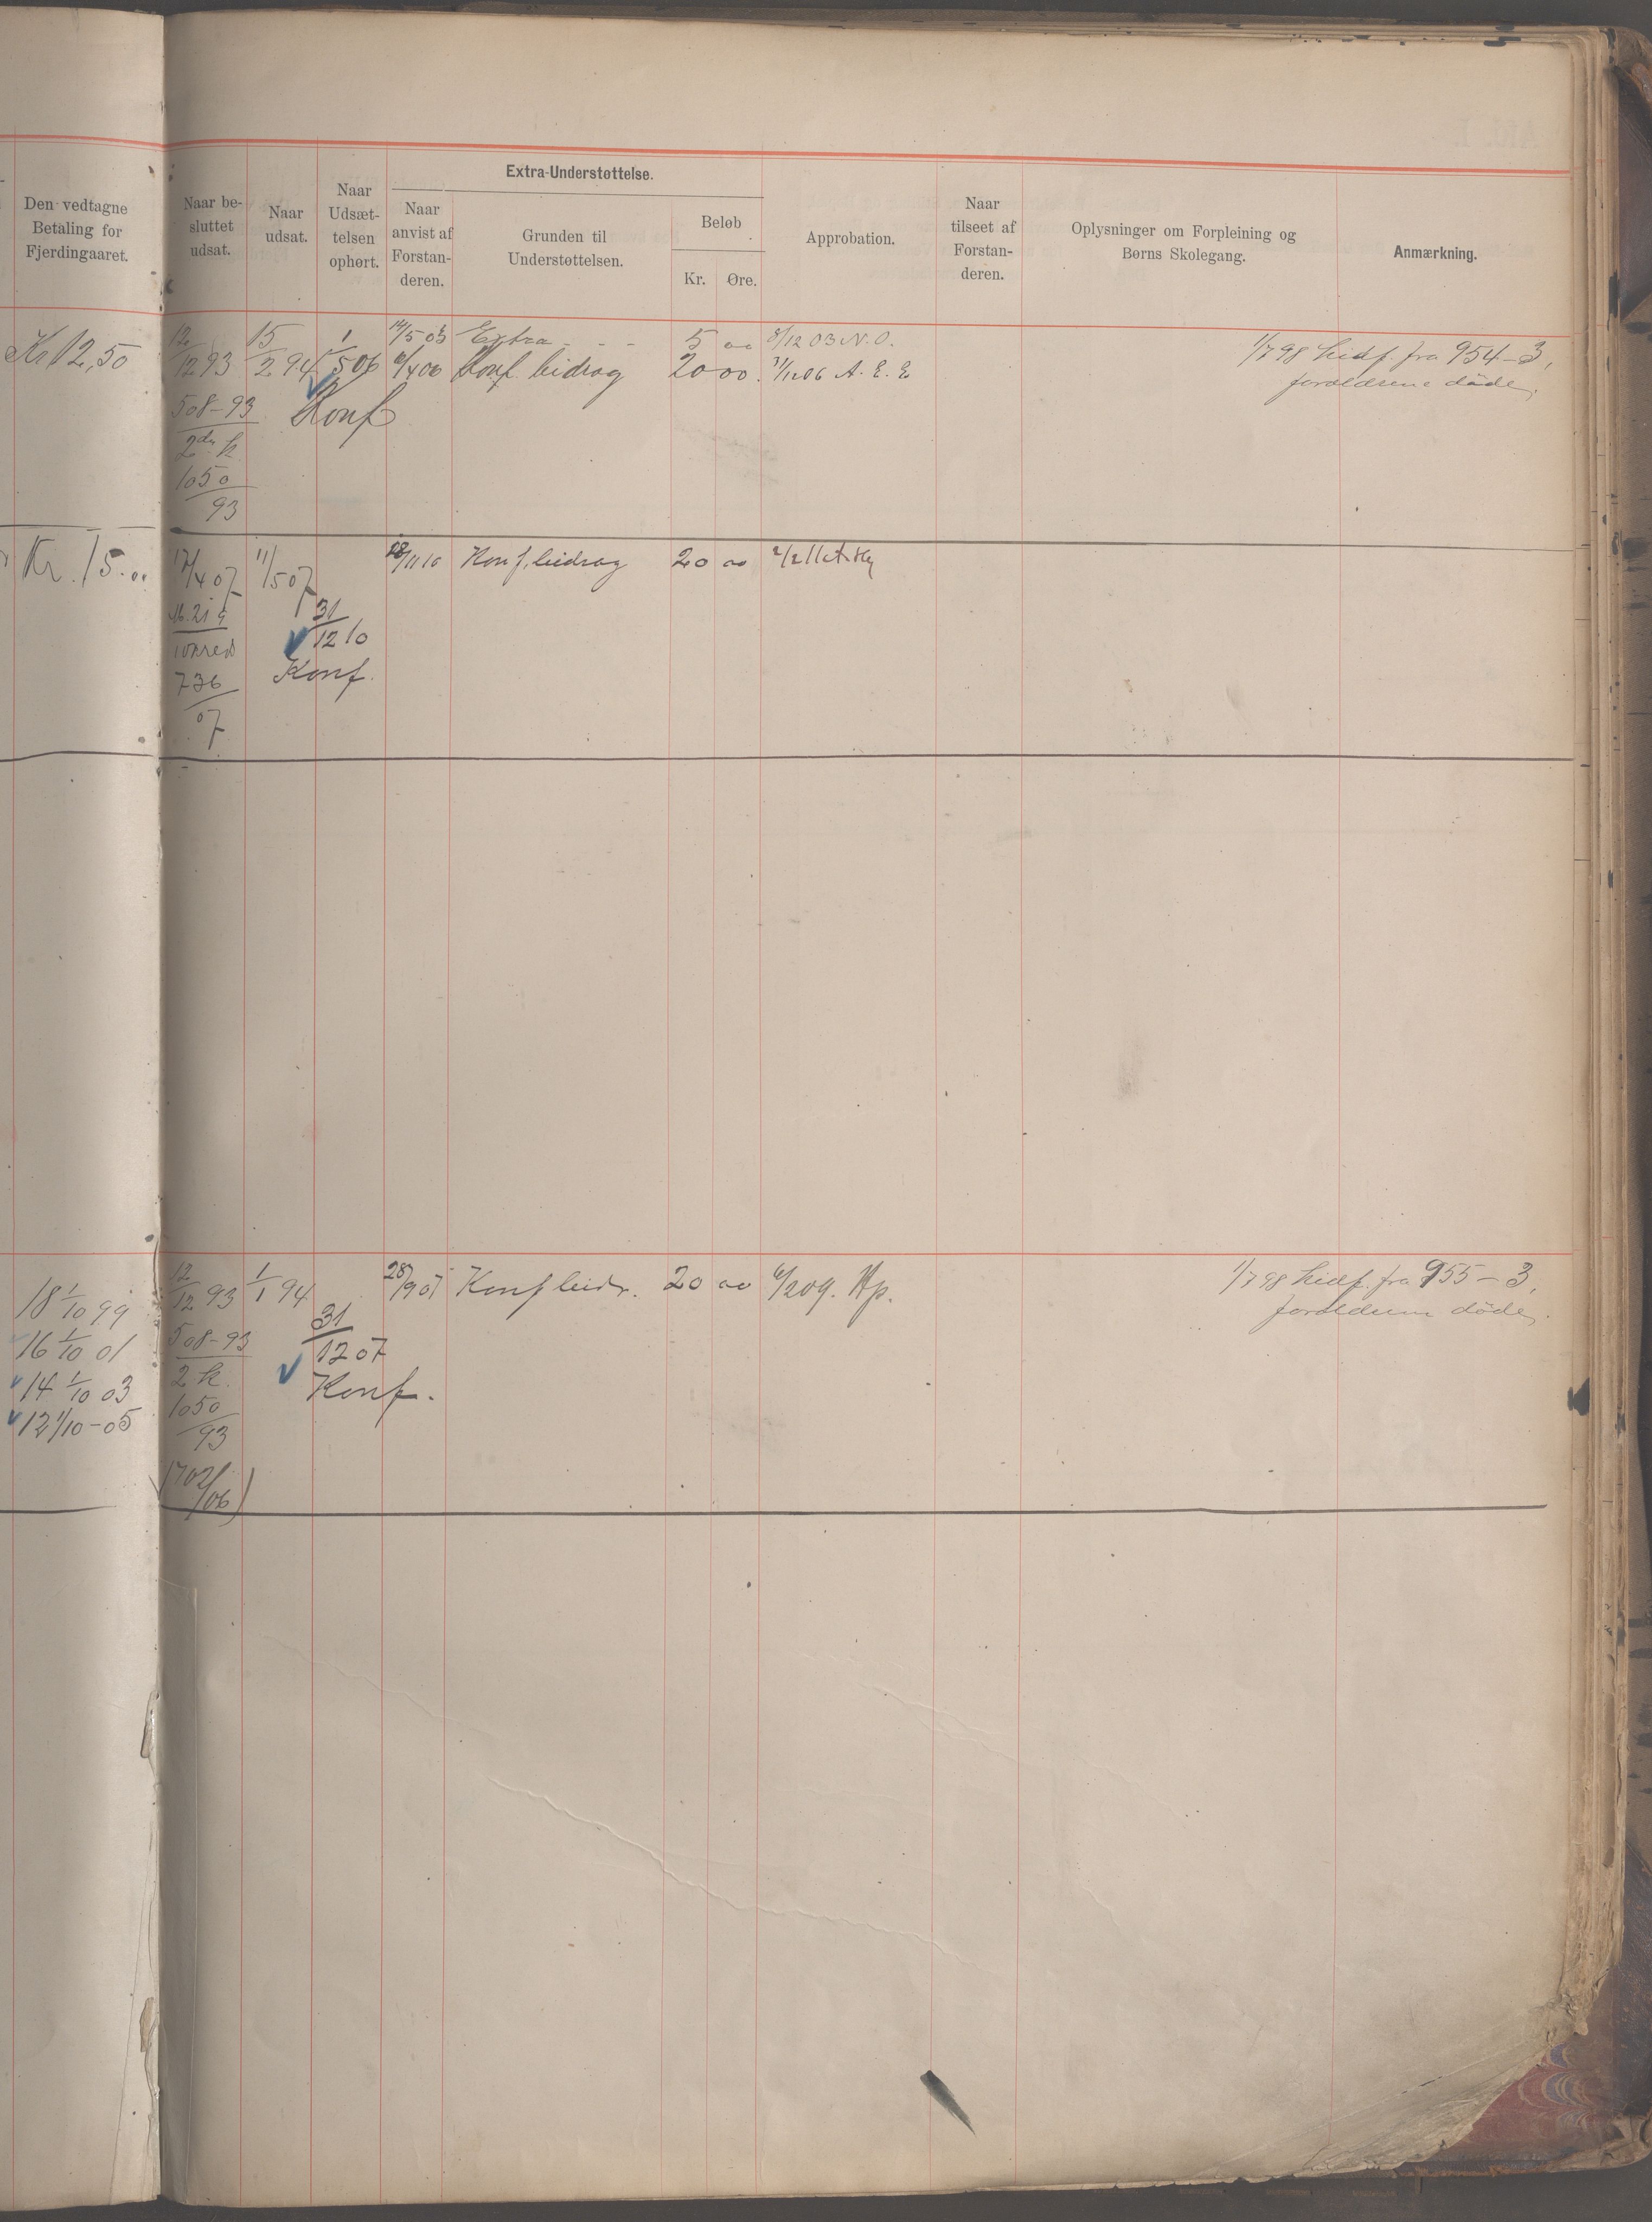 Den vedtagne
Betaling for
Fjerdingaaret.
Naar be-
sluttet
udsat.
Naar
udsat.
Naar
Udsæt-
telsen
ophørt.
Extra-Understøttelse.
Naar
anvist af
Forstan-
deren.
Grunden til
Understøttelsen.
Beløb
Kr. Øre.
Approbation.
Naar
tilseet af
Forstan-
deren.
Oplysninger om Forpleining og
Børns Skolegang.
Anmærkning.
Kr 12,50
12/12 93 15/2 94 1/5 06
14/5 03 Extra - - - 5 00 9/12 03 N.O.
6/4 06 Konf. bidrag 20 00 A. E. E
1/7 98 hidf. fra 954-3,
forældrene døde.
508-93
2den k
1050
93
Konf
Kr. 15.00
17/4 07 11/5 07
18/11 10 Konf. bidrag 20 00
736
07
31/12 10
Konf.
18 1/10 99
16 1/10 01
14 1/10 03
12 1/10-05
12/12 93 1/1 94
28/9 07 Konf bidr. 20 00 6/2 09. Hp.
1/7 98 hidf. fra 955-3,
forældrene døde.
508-93
2 k.
1050
93
(702/06)
31/12 07
Konf.